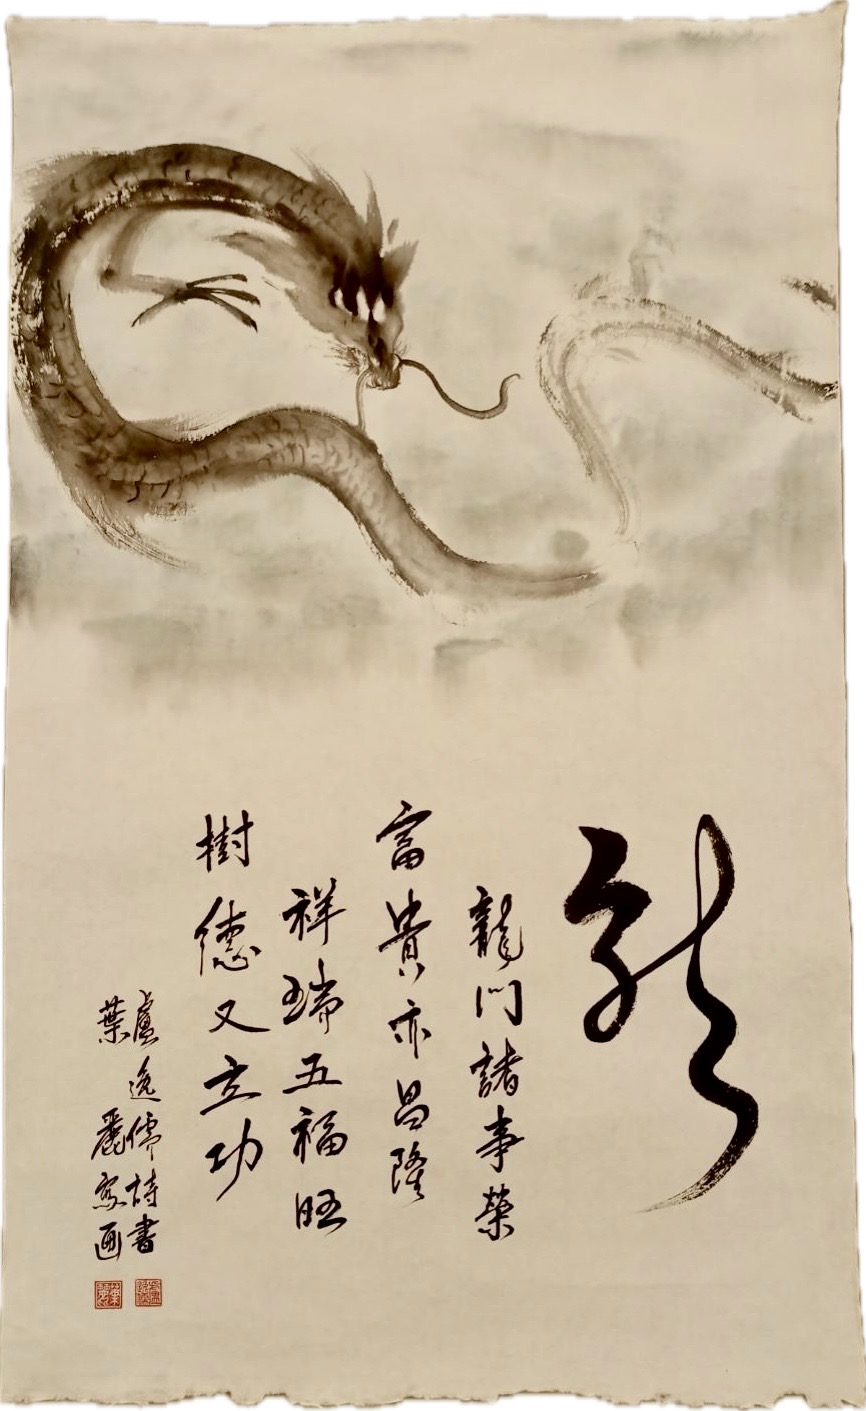 龍
龍門諸事榮
富貴亦昌隆
祥瑞五福旺
樹德又立功
盧逸儒詩書
葉麗画